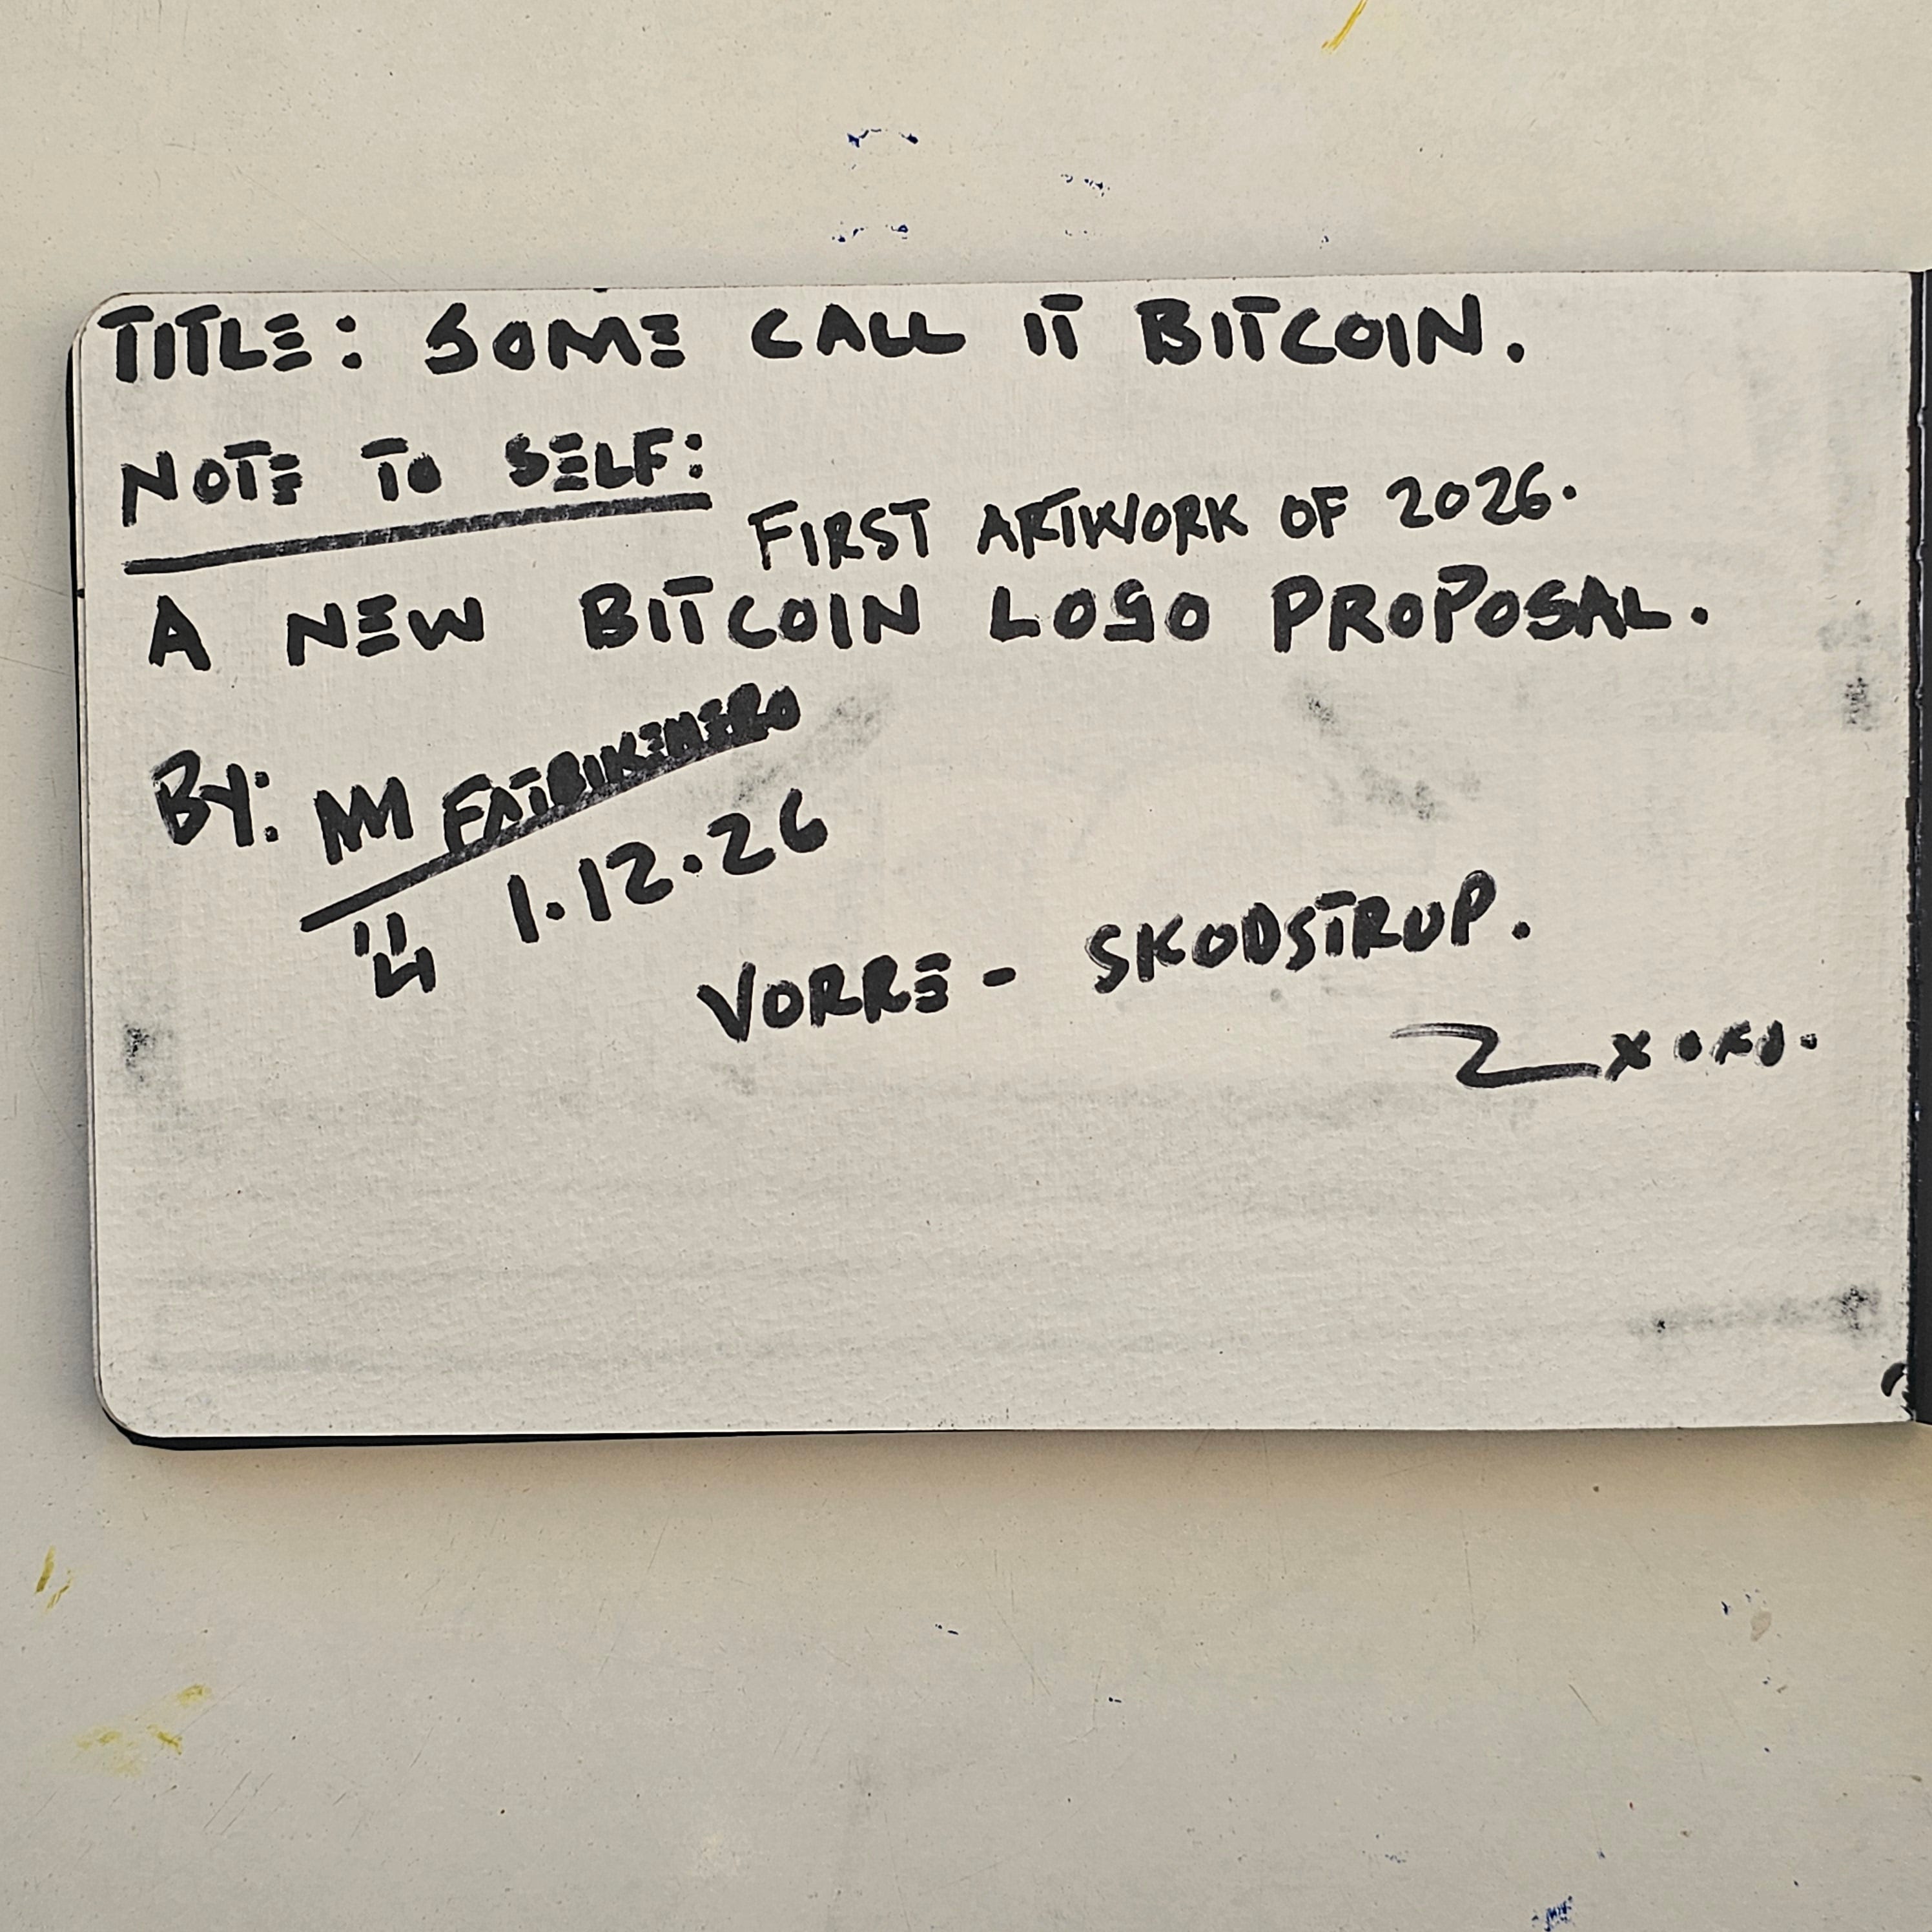 TITLE: SOME CALL IT BITCOIN.
NOTE TO SELF:
FIRST ARTWORK OF 2026.
A NEW BITCOIN LOGO PROPOSAL.
By: FATBIKEHERO
1.12.26
VORRE - SKODSTRUP.
XOXO.